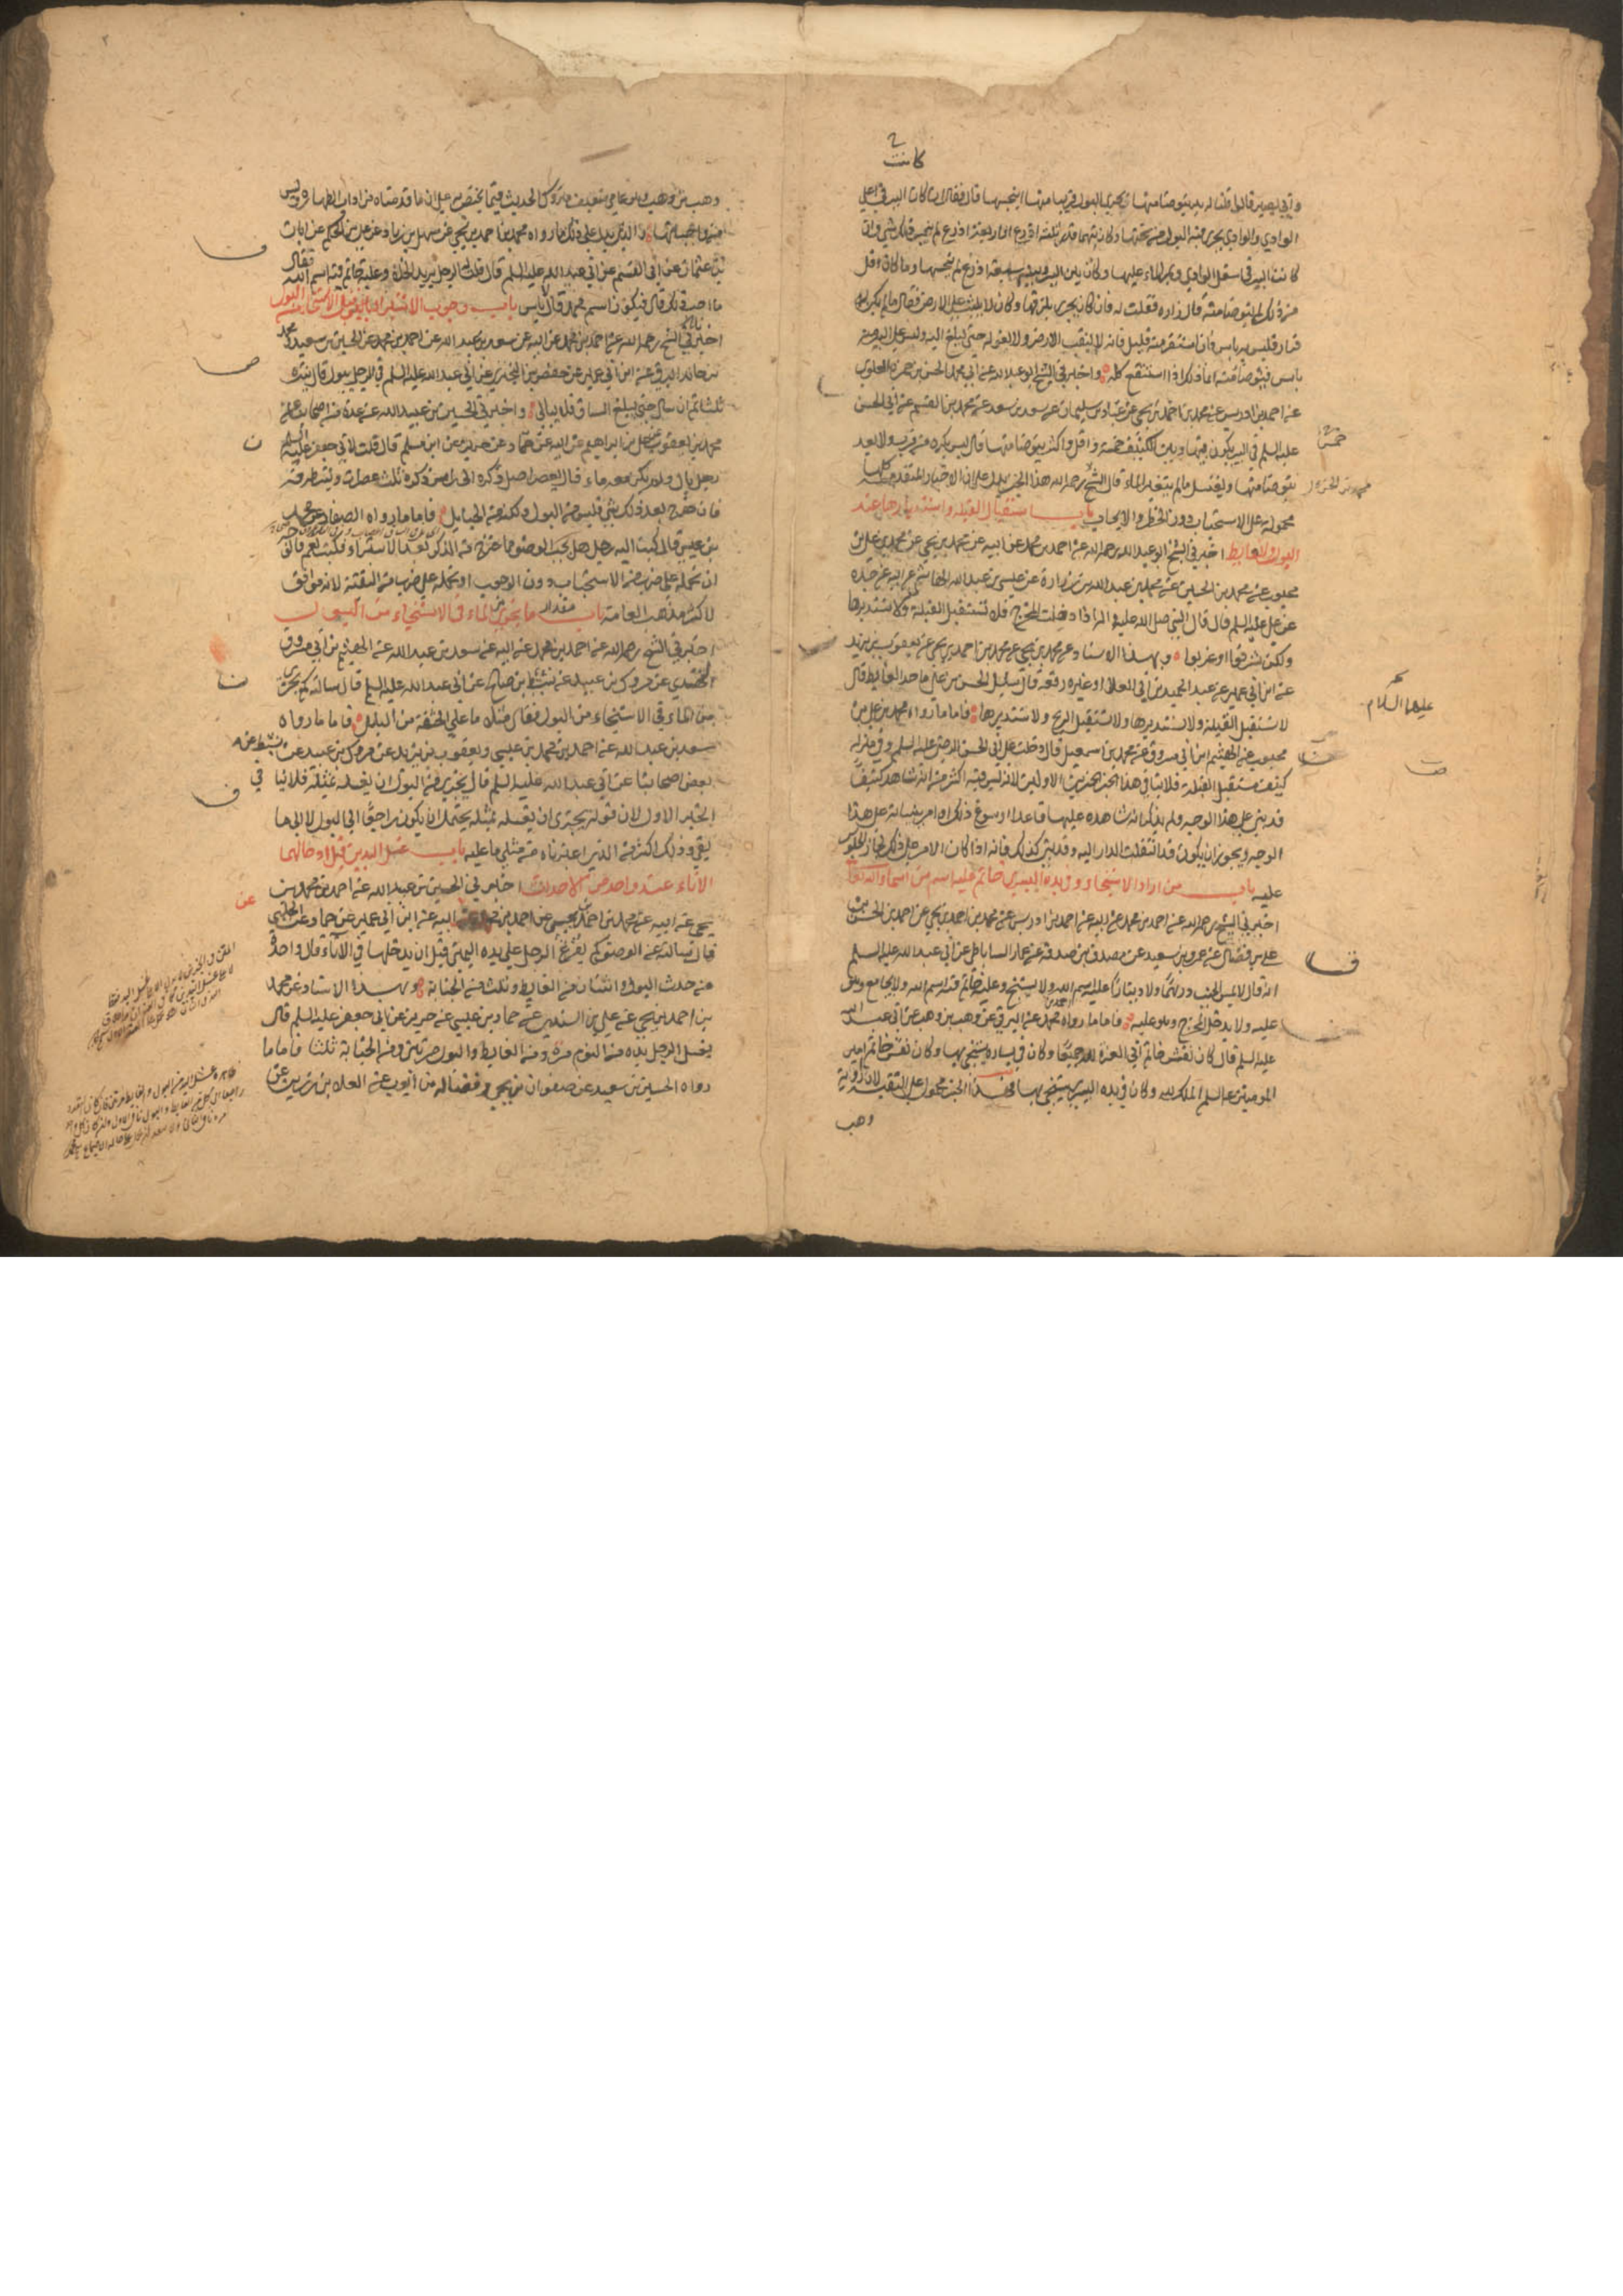 كانت
وابي بصير قالوا قلنا له بئر يتوضا منها يجري البول قريبا منها اينجسها قال فقال ان كانت البير في اعلى
الوادي والوادي يجري فيه البول من تحتها وكان بينهما قدر ثلثة اذرع او اربعة اذرع لم ينجس ذلك شي وان
كانت البير في اسفل الوادي ويمر الماء عليها وكان بين البير وبينه سبعة اذرع لم ينجسها وما كان اقل
من ذلك لم يتوضا منه قال زراره فقلت له فان كان يجري بلزقها وكان لا يلبث على الارض فقال ما لم يكن له
قرار فليس به باس فان استقر منه قليل فانه لا يثقب الارض ولا يغوله حتى يبلغ اليه وليس على البير منه
باس فيتوضا منه انما ذلك اذا استنقع كله واخبرني الشيخ ابو عبد الله عن ابي محمد الحسن بن حمزة العلوي
عن احمد بن ادريس عن محمد بن احمد بن يحيى عن عباد بن سليمان عن سعد بن سعد عن محمد بن القسم عن ابي الحسن
عليه السلم في البير يكون بينها وبين الكنيف خمسة واقل واكثر يتوضا منها قال ليس يكره من قرب ولا بعد
يتوضا منها ويغتسل ما لم يتغير الماء قال الشيخ رحمه الله هذا الخبر يدل على ان الاخبار المتقدمة كلها
محمولة على الاستحباب دون الحظر والايجاب باب استقبال القبلة واستدبارها عند
البول والغايط اخبرني الشيخ ابو عبد الله رحمه الله عن احمد بن محمد عن ابيه عن محمد بن يحيى عن محمد بن علي بن
محبوب عن محمد بن الحسين عن محمد بن عبد الله بن زرارة عن عيسى بن عبد الله الهاشمي عن ابيه عن جده
عن علي عليه السلم قال قال النبي صلى الله عليه واله اذا دخلت المخرج فلا تستقبل القبلة ولا تستدبرها
ولكن شرقوا او غربوا وبهذا الاسناد عن محمد بن يحيى عن محمد بن احمد بن يحيى عن يعقوب بن يزيد
عن ابن ابي عمير عن عبد الحميد بن ابي العلاء او غيره رفعه قال سئل الحسن بن علي ما حد الغايط قال
لا تستقبل القبلة ولا تستدبرها ولا تستقبل الريح ولا تستدبرها فاما ما رواه محمد بن علي بن
محبوب عن الهيثم ابن ابي مسروق عن محمد بن اسمعيل قال دخلت على ابي الحسن الرضا عليه السلم وفي منزله
كنيف مستقبل القبلة فلا ينافي هذا الخبر الخبرين الاولين لانه ليس فيه اكثر من انه شاهد كنيفا
قد بني على هذا الوجه ولم يذكر انه شاهده عليها قاعدا او سوغ ذلك او امر ببنيانه على هذا
الوجه ويجوز ان يكون قد انتقلت الدار اليه وقد بني كذلك فانه اذا كان الامر على ذلك لجاز الجلوس
عليه باب من اراد الاستنجاء وفي يده اليسرى خاتم عليه اسم من اسماء الله تعالى
اخبرني الشيخ رحمه الله عن احمد بن محمد عن ابيه عن احمد بن ادريس عن محمد بن احمد بن يحيى عن احمد بن الحسن بن
علي بن فضال عن عمرو بن سعيد عن مصدق بن صدقة عن عمار الساباطي عن ابي عبد الله عليه السلم
انه قال لا يمس الجنب درهما ولا دينارا عليه اسم الله ولا يستنجي وعليه خاتم فيه اسم الله ولا يجامع وهو
عليه ولا يدخل المخرج وهو عليه فاما ما رواه محمد عن البرقي عن وهب بن وهب عن ابي عبد الله
عليه السلم قال كان نقش خاتم ابي العزة لله جميعا وكان في يساره يستنجي بها وكان نقش خاتم امير
المومنين عليه السلم الملك لله وكان في يده اليسرى يستنجي بها فهذا الخبر محمول على التقية لان راويه
وهب
عليهما السلام
وهب بن وهب وهو عامي ضعيف متروك الحديث فيما يختص به على ان ما قدمناه من اداب الطهارة وليس
من واجباتها والذي يدل على ذلك ما رواه محمد بن احمد بن يحيى عن سهل بن زياد عن علي بن الحكم عن ابان
بن عثمان عن ابي القسم عن ابي عبد الله عليه السلم قال قلت له الرجل يريد الخلاء وعليه خاتم فيه اسم الله فقال
ما احب ذلك قال فيكون اسم محمد قال لا باس باب وجوب الاستبراء قبل الاستنجاء من البول
اخبرني الشيخ رحمه الله عن احمد بن محمد عن ابيه عن سعد بن عبد الله عن احمد بن محمد عن الحسين بن سعيد ومحمد
بن خالد البرقي عن ابن ابي عمير عن حفص بن البختري عن ابي عبد الله عليه السلم في الرجل يبول قال ينتره
ثلثا ثم ان سال حتى يبلغ الساق فلا يبالي واخبرني الحسين بن عبيد الله عن عدة من اصحابنا عن
محمد بن يعقوب عن علي بن ابراهيم عن ابيه عن حماد عن حريز عن ابن مسلم قال قلت لابي جعفر عليه السلم
رجل بال ولم يكن معه ماء قال يعصر اصل ذكره الى راس ذكره ثلث عصرات وينتر طرفه
فان خرج بعد ذلك شي فليس من البول ولكنه من الحبايل فاما ما رواه الصفار عن محمد
بن عيسى قال كتب اليه رجل هل يجب الوضوء مما خرج من الذكر بعد الاستبراء فكتب نعم فالوجه
ان نحمله على ضرب من الاستحباب دون الوجوب او نحمله على ضرب من التقية لانه موافق
لاكثر مذهب العامة باب مقدار ما يجزي من الماء في الاستنجاء من البول
اخبرني الشيخ رحمه الله عن احمد بن محمد عن ابيه عن سعد بن عبد الله عن الهيثم بن ابي مسروق
النهدي عن مروك بن عبيد عن نشيط بن صالح عن ابي عبد الله عليه السلم قال سالته كم يجزي
من الماء في الاستنجاء من البول فقال مثلا ما على الحشفة من البلل فاما ما رواه
سعد بن عبد الله عن احمد بن محمد بن عيسى ويعقوب بن يزيد عن مروك بن عبيد عن نشيط عن
بعض اصحابنا عن ابي عبد الله عليه السلم قال يجزي من البول ان يغسله بمثله فلا ينافي
الخبر الاول لان قوله يجزي ان يغسله بمثله يحتمل ان يكون راجعا الى البول لا الى ما
بقي وذلك اكثر من الذي اعتبرناه من مثلي ما عليه باب غسل اليدين قبل ادخالهما
الاناء عند واحد من الاحداث اخبرني الحسين بن عبيد الله عن احمد بن محمد بن
يحيى عن ابيه عن محمد بن احمد بن يحيى عن احمد بن محمد عن ابيه عن ابن ابي عمير عن حماد عن الحلبي
قال سالته عن الوضوء كم يفرغ الرجل على يده اليمنى قبل ان يدخلها في الاناء قال واحدة
من حدث البول واثنتان من الغايط وثلث من الجنابة وبهذا الاسناد عن محمد
بن احمد بن يحيى عن علي بن السندي عن حماد بن عيسى عن حريز عن ابي جعفر عليه السلم قال
يغسل الرجل يده من النوم مرة ومن الغايط والبول مرتين ومن الجنابة ثلثا فاما ما
رواه الحسين بن سعيد عن صفوان بن يحيى وفضاله بن ايوب عن العلاء بن رزين عن